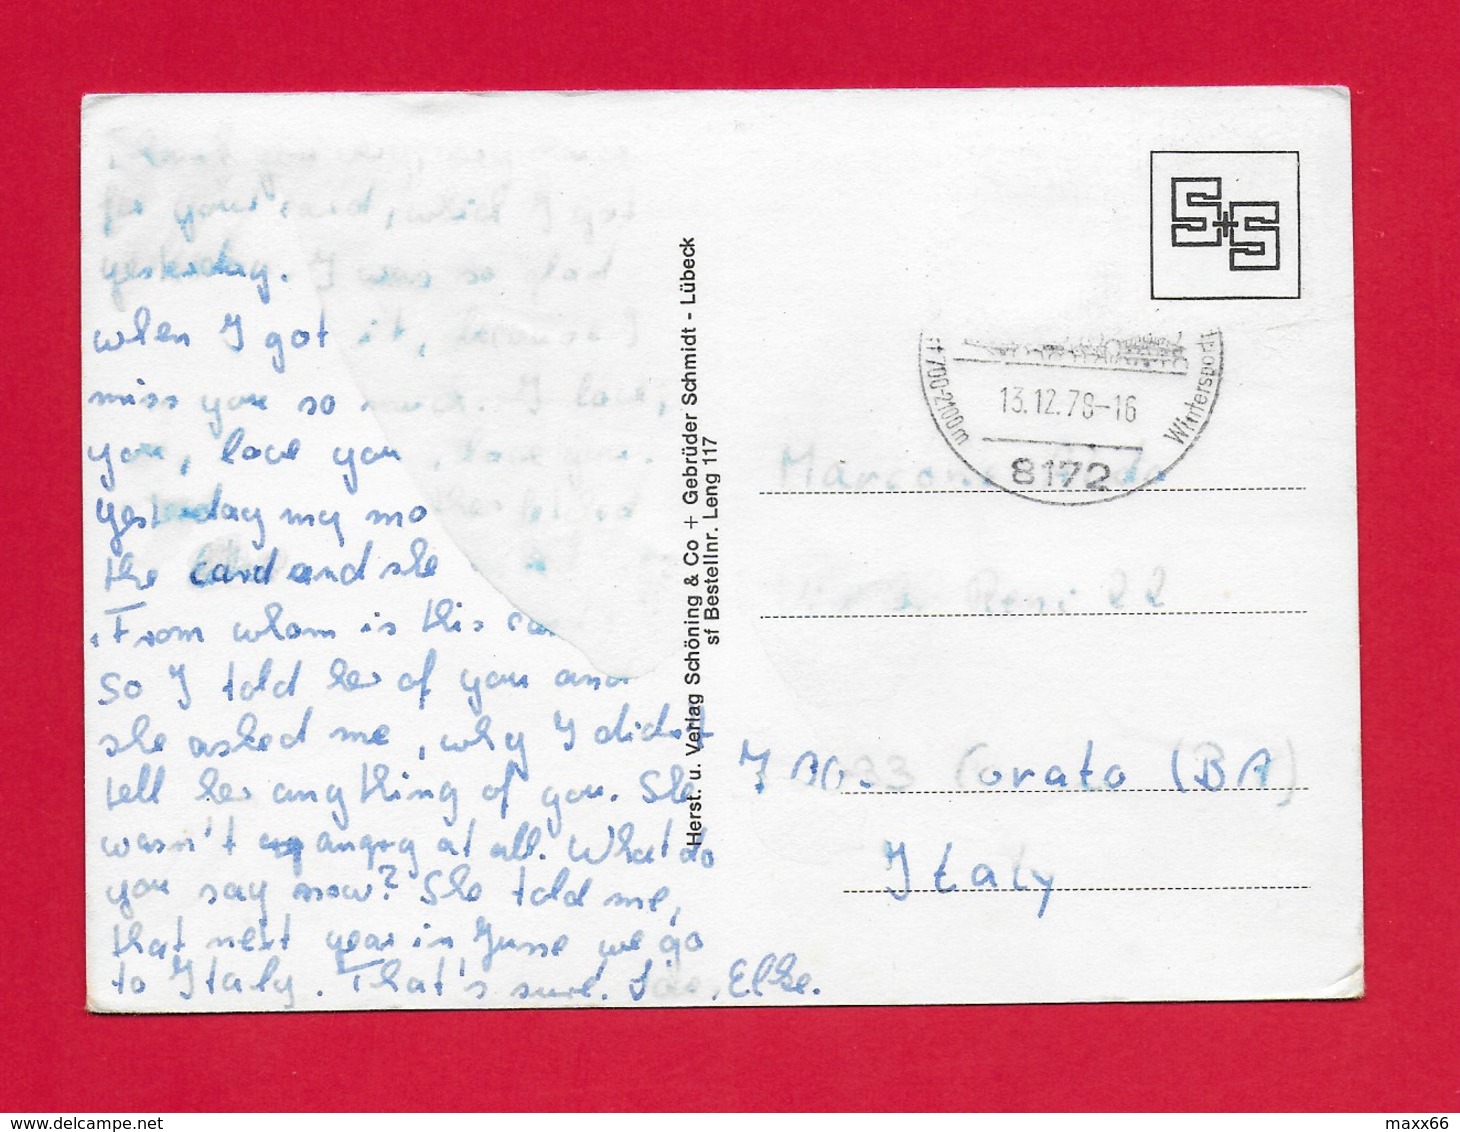 for your card, which I got
yesterday. I was so glad
when I got it, because I
miss you so much. I love
you, love you, love you.
yesterday my mo
the card and she
From whom is this car
So I told her of you and
she asked me, why I didn't
tell her anything of you. She
wasn't angry at all. What do
you say now? She told me,
that next year in June we go
to Italy. That's sure. Elke.
Herst. u. Verlag Schöning & Co + Gebrüder Schmidt - Lübeck
sf Bestellnr. Leng 117
S+S
700-2100m
Wintersport
13.12.78-16
8172
Reni 22
Corato (BA)
Italy
delcampe.net
maxx66